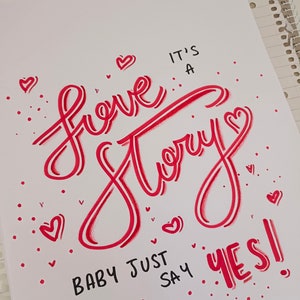 IT'S
A
Love
Story
BABY JUST
SAY
YES!